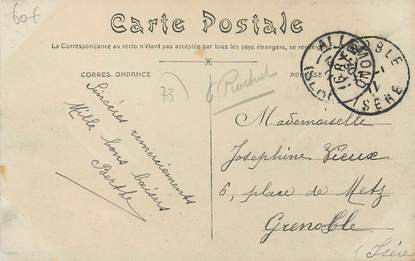 60€
Carte Postale
La Correspondance au recto n'étant pas acceptée par tous les pays étrangers, se renseigner
CORRES. ONDANCE
ADRESSE
73)
Sincères remerciements
Mille bons baisers
Berthe
Mademoiselle
Josephine Vieux
6, place de Metz
Grenoble
(Isère
ALLEMOND
ISÈRE